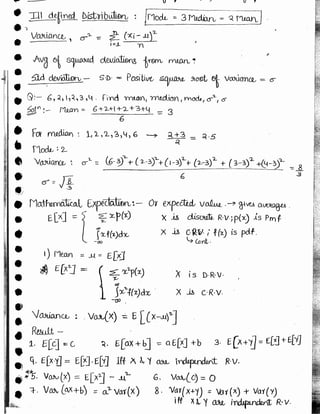 Ill defined Distribution : Mode = 3 Median - 2 Mean
Variance, σ² = Σ_{i=1}^{n} (xᵢ - μ)² / n
Avg of squared deviations from mean ?
Std deviation - S.D = Positive square root of variance = σ
Q:- 6, 2, 1, 2, 3, 4. Find mean, median, mode, σ², σ
Solⁿ:- Mean = (6+2+1+2+3+4)/6 = 3
For median : 1, 2, 2, 3, 4, 6 → (2+3)/2 = 2.5
Mode : 2
Variance : σ² = ((6-3)² + (2-3)² + (1-3)² + (2-3)² + (3-3)² + (4-3)²)/6 = 8/3
σ = √(8/3)
Mathematical Expectation :- Or expected value → gives averages.
E[x] = { Σₓ x p(x) X is discrete R.V; p(x) is Pmf
∫_{-∞}^{∞} x f(x) dx X is C R.V ; f(x) is pdf.
↳ Cont.
1) Mean = μ = E[x]
E[x²] = { Σₓ x² p(x) X is D.R.V.
∫_{-∞}^{∞} x² f(x) dx X is C.R.V.
Variance : Var(x) = E[(x-μ)²]
Result -
1. E[c] = c 2. E[ax+b] = a E[x] + b 3. E[x+y] = E[x] + E[y]
4. E[x·y] = E[x]·E[y] Iff X & Y are independent R.V.
5. Var(x) = E[x²] - μ² 6. Var(c) = 0
7. Var(ax+b) = a² Var(x) 8. Var(x+y) = Var(x) + Var(y)
iff X & Y are independent R.V.